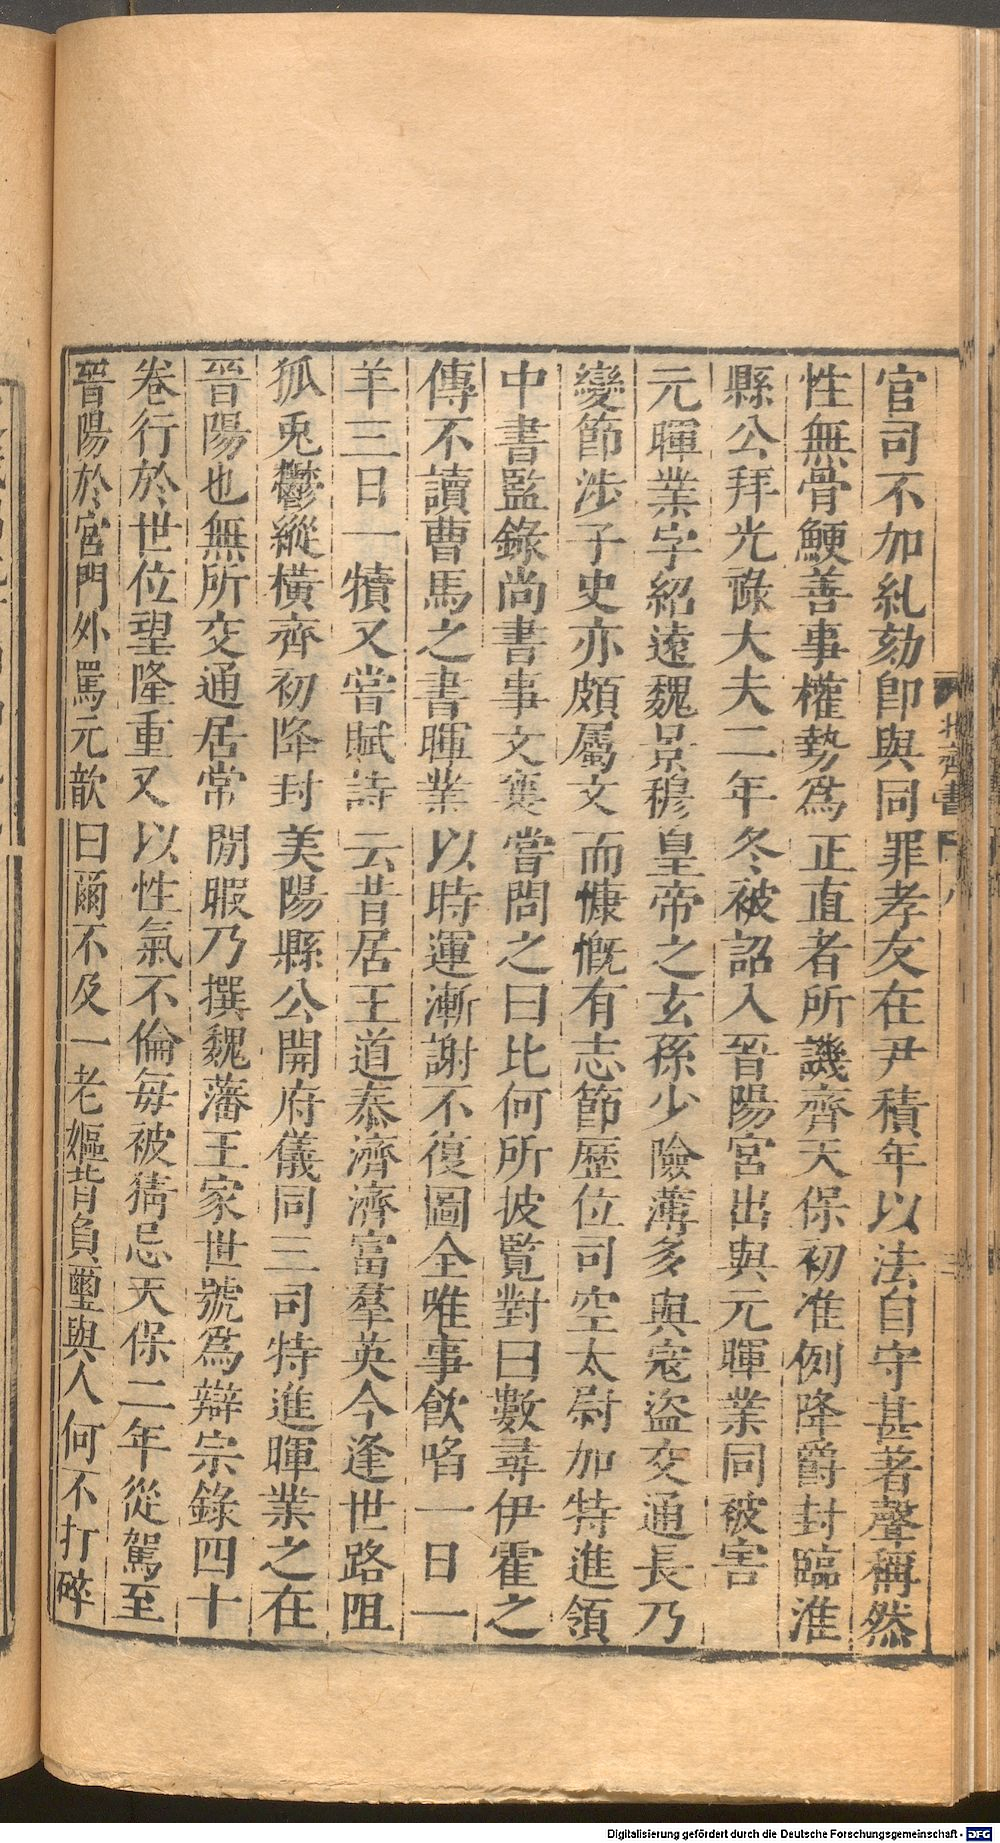 官司不加糺劾卽與同罪孝友在尹積年以法自守甚著聲稱然
性無骨鯁善事權勢爲正直者所譏齊天保初准例降爵封臨淮
縣公拜光祿大夫二年冬被詔入晉陽宮出與元暉業同被害
元暉業字紹遠魏景穆皇帝之玄孫少險薄多與寇盜交通長乃
變節涉子史亦頗屬文而慷慨有志節歷位司空太尉加特進領
中書監錄尚書事文襄嘗問之曰比何所披覽對曰數尋伊霍之
傳不讀曹馬之書暉業以時運漸謝不復圖全唯事飮啗一日一
羊三日一犢又嘗賦詩云昔居王道泰濟濟富羣英今逢世路阻
狐兎鬱縱橫齊初降封美陽縣公開府儀同三司特進暉業之在
晉陽也無所交通居常閒暇乃撰魏藩王家世號爲辯宗錄四十
卷行於世位望隆重又以性氣不倫每被猜忌天保二年從駕至
晉陽於宮門外罵元歆曰爾不及一老嫗背負璽與人何不打碎
北齊書
八
Digitalisierung gefördert durch die Deutsche Forschungsgemeinschaft - DFG